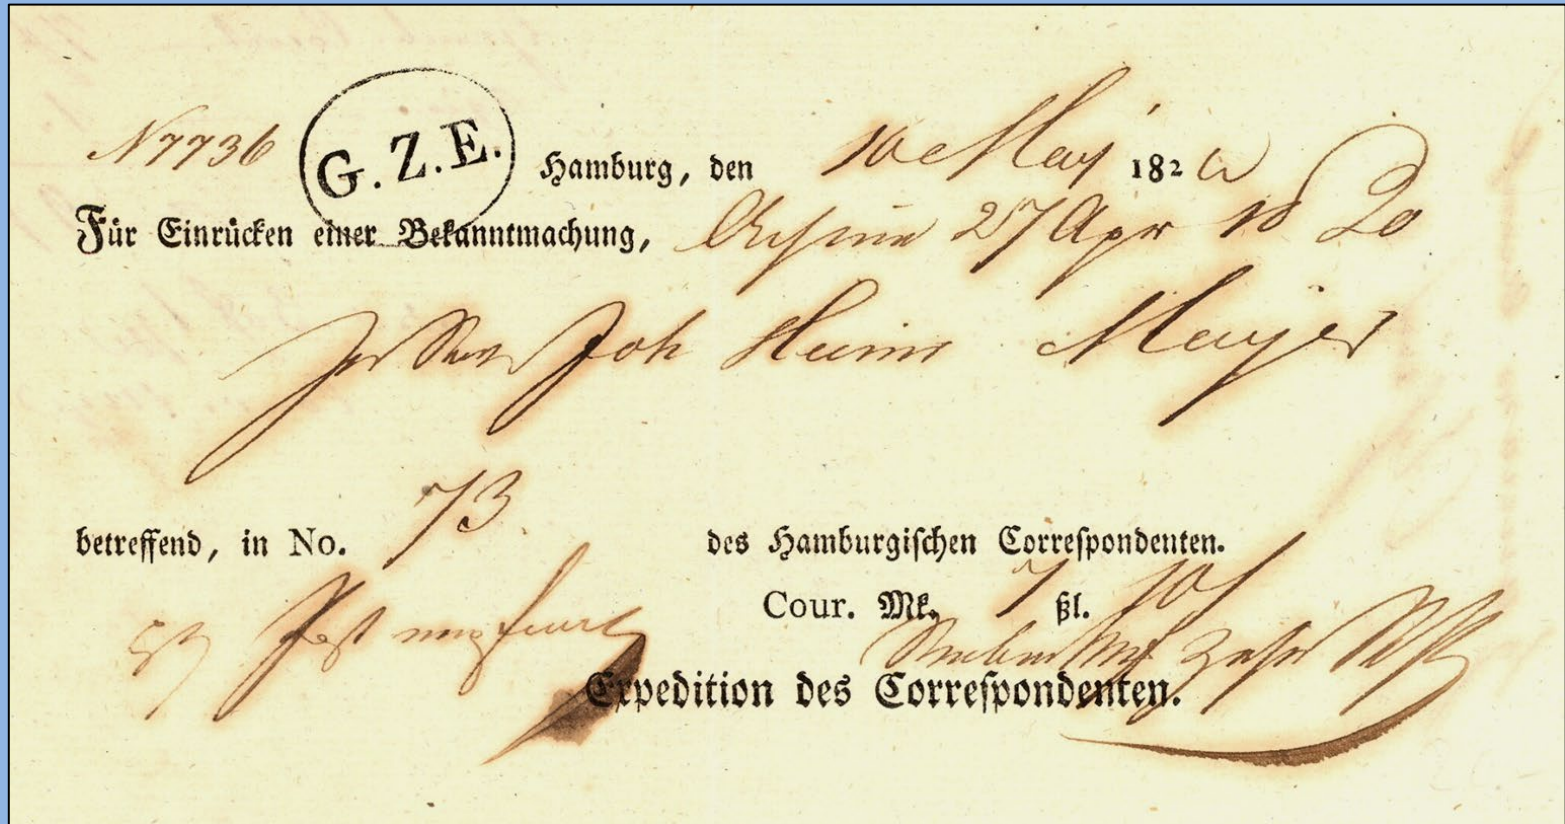 N 7736 G. Z. E. Hamburg, den 10 May 182
Für Einrücken einer Bekanntmachung, 27 Apr 1820
Joh Heinr Meyer
betreffend, in No. 73 des Hamburgischen Correspondenten.
Cour. Mk. 7 ßl. 10
Expedition des Correspondenten.